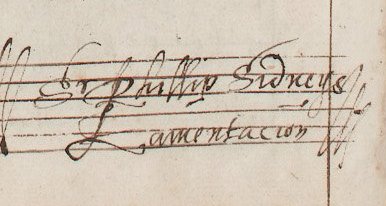 Sr Phillip Sidneys
Lamentacion